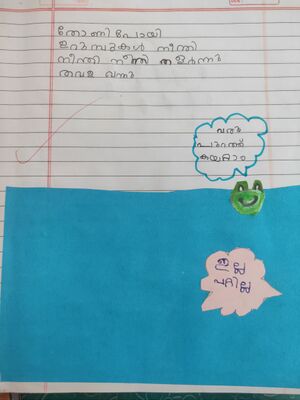 തോണി പോയി
ഉറുമ്പുകൾ നീന്തി
നീന്തി നീന്തി തളർന്നു
തവള വന്നു
വരൂ
പുറത്ത്
കയറാം
ഇല്ല
പറ്റില്ല